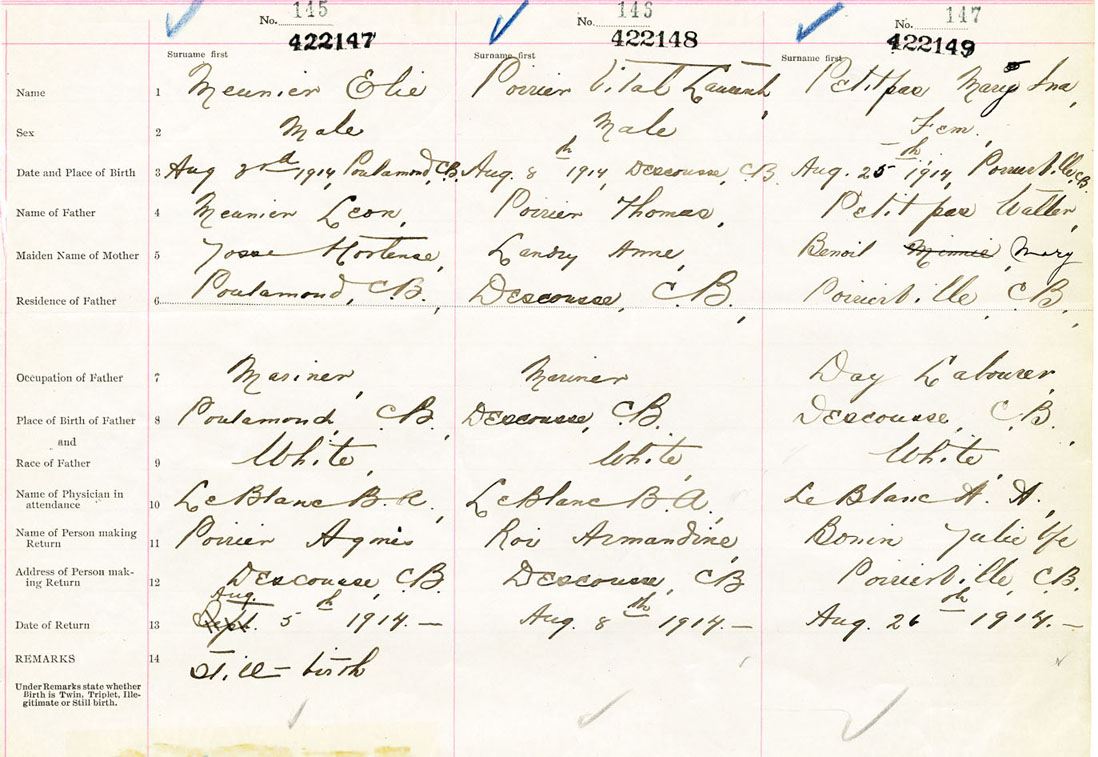 No. 145 No. 146 No. 147
422147 422148 422149
Surname first Surname first Surname first
Name 1 Meunier Elie Poirier Vital Petitpas Mary Ina,
Sex 2 Male Male Fem,
Date and Place of Birth 3 Aug 3rd 1914, Poulamond, C.B. Aug. 8th 1914 Descousse, C.B. Aug. 25th, 1914, Poirierville, C.B.
Name of Father 4 Meunier Leon, Poirier Thomas, Petitpas Walter,
Maiden Name of Mother 5 Josse Hortense, Landry Anne, Benoit Minnie Mary
Residence of Father 6 Poulamond, C.B., Descousse, C.B., Poirierville, C.B.,
Occupation of Father 7 Mariner, Mariner, Day Labourer,
Place of Birth of Father 8 Poulamond, C.B., Descousse, C.B. Descousse, C.B.
and
Race of Father 9 White, White, White,
Name of Physician in
attendance 10 LeBlanc B.A., LeBlanc B.A, LeBlanc A. A.
Name of Person making
Return 11 Poirier Agnes Roi Armandine, Bonin Julie
Address of Person mak-
ing Return 12 Descousse, C.B. Descousse, C.B Poirierville, C.B.
Aug.
Date of Return 13 Sept. 5th 1914.— Aug. 8th 1914.— Aug. 26th 1914.—
REMARKS 14 Still-birth
Under Remarks state whether
Birth is Twin, Triplet, Ille-
gitimate or Still birth.